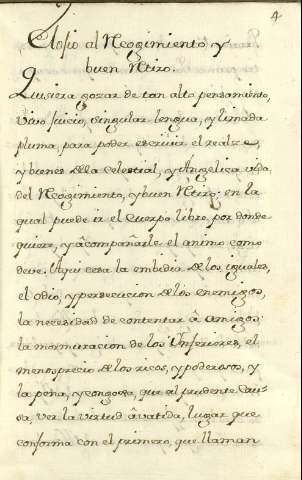 4
Elogio al Recogimiento y
buen Retiro.
Quisiera gozar de tan alto pensamiento,
vivo juicio, singular lengua, y limada
pluma, para poder escrivir el realze,
y bienes dela celestial, y Angelica vida
del Recogimiento, y buen Retiro: en la
qual puede ir el Cuerpo libre por donde
quiere, y acompañarle el animo como
deve. Aqui cesa la embidia de los iguales,
el odio, y persecucion de los enemigos,
la necesidad de contentar â amigos:
la mormuracion de los Ynferiores, el
menosprecio de los ricos, y poderosos, y
la pena, y congoxa, que al prudente Cau-
sa, ver la virtud âvatida, lugar que
conforma con el primero, que llaman